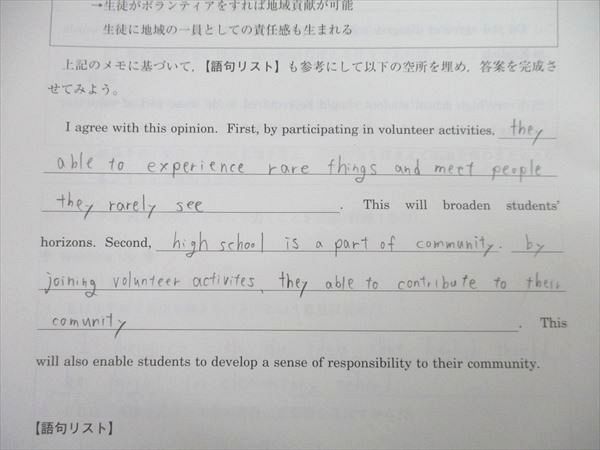 →生徒がボランティアをすれば地域貢献が可能
生徒に地域の一員としての責任感も生まれる
上記のメモに基づいて,【語句リスト】も参考にして以下の空所を埋め,答案を完成さ
せてみよう。
I agree with this opinion. First, by participating in volunteer activities, they
able to experience rare things and meet people
they rarely see . This will broaden students'
horizons. Second, high school is a part of community. by
joining volunteer activites, they able to contribute to their
comunity . This
will also enable students to develop a sense of responsibility to their community.
【語句リスト】